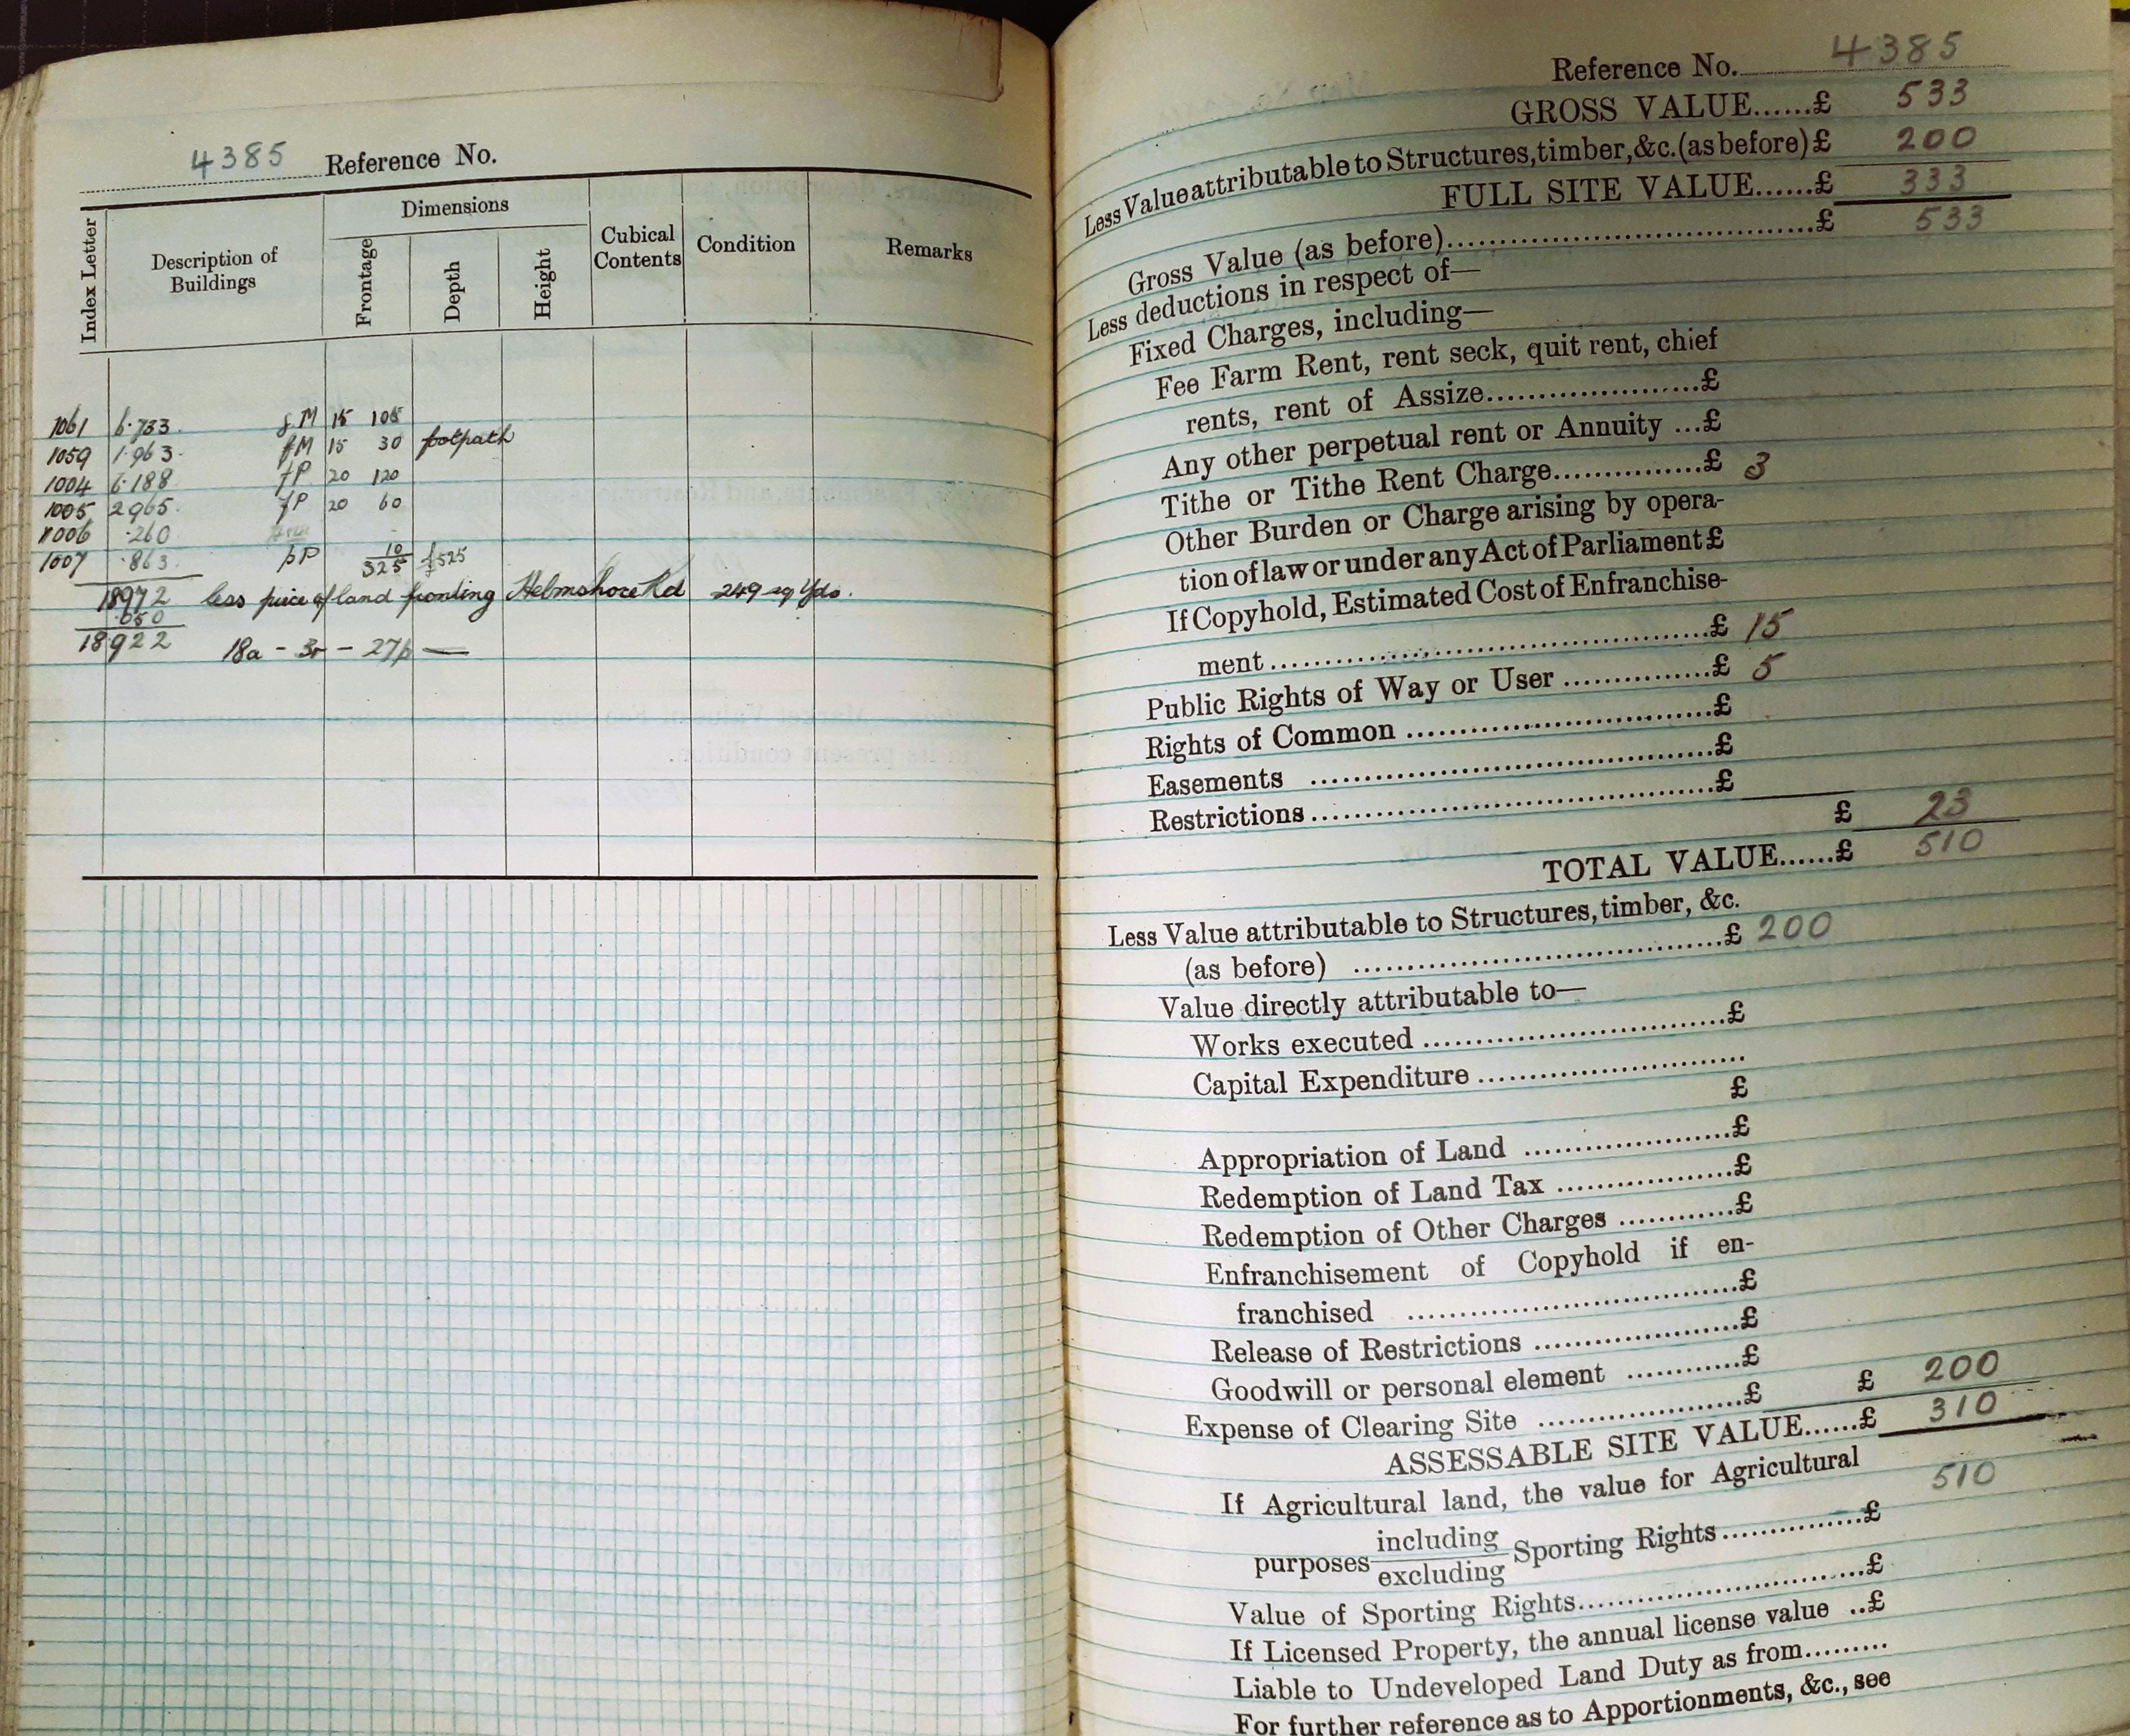 4385 Reference No.
Index Letter
Description of Buildings
Dimensions
Frontage
Depth
Height
Cubical Contents
Condition
Remarks
1061 6.733 fM 15 105
1059 1.963 fM 15 30 footpath
1004 6.188 fP 20 120
1005 2965 fP 20 60
1006 .260
1007 .863 pP 10
325 £525
18972 less piece of land fronting Helmshore Rd 249 sq yds.
.050
18922 18a - 3r - 27p
Reference No. 4385
GROSS VALUE......£ 533
Less Value attributable to Structures, timber, &c. (as before) £ 200
FULL SITE VALUE......£ 333
Gross Value (as before)......£ 533
Less deductions in respect of—
Fixed Charges, including—
Fee Farm Rent, rent seck, quit rent, chief
rents, rent of Assize......£
Any other perpetual rent or Annuity ...£
Tithe or Tithe Rent Charge......£ 3
Other Burden or Charge arising by opera-
tion of law or under any Act of Parliament £
If Copyhold, Estimated Cost of Enfranchise-
ment......£ 15
Public Rights of Way or User......£ 5
Rights of Common......£
Easements......£
Restrictions......£
£ 23
TOTAL VALUE......£ 510
Less Value attributable to Structures, timber, &c.
(as before)......£ 200
Value directly attributable to—
Works executed......£
Capital Expenditure......
£
Appropriation of Land......£
Redemption of Land Tax......£
Redemption of Other Charges......£
Enfranchisement of Copyhold if en-
franchised......£
Release of Restrictions......£
Goodwill or personal element......£
Expense of Clearing Site......£ £ 200
ASSESSABLE SITE VALUE......£ 310
If Agricultural land, the value for Agricultural 510
purposes including
excluding Sporting Rights......£
Value of Sporting Rights......£
If Licensed Property, the annual license value ..£
Liable to Undeveloped Land Duty as from.........
For further reference as to Apportionments, &c., see